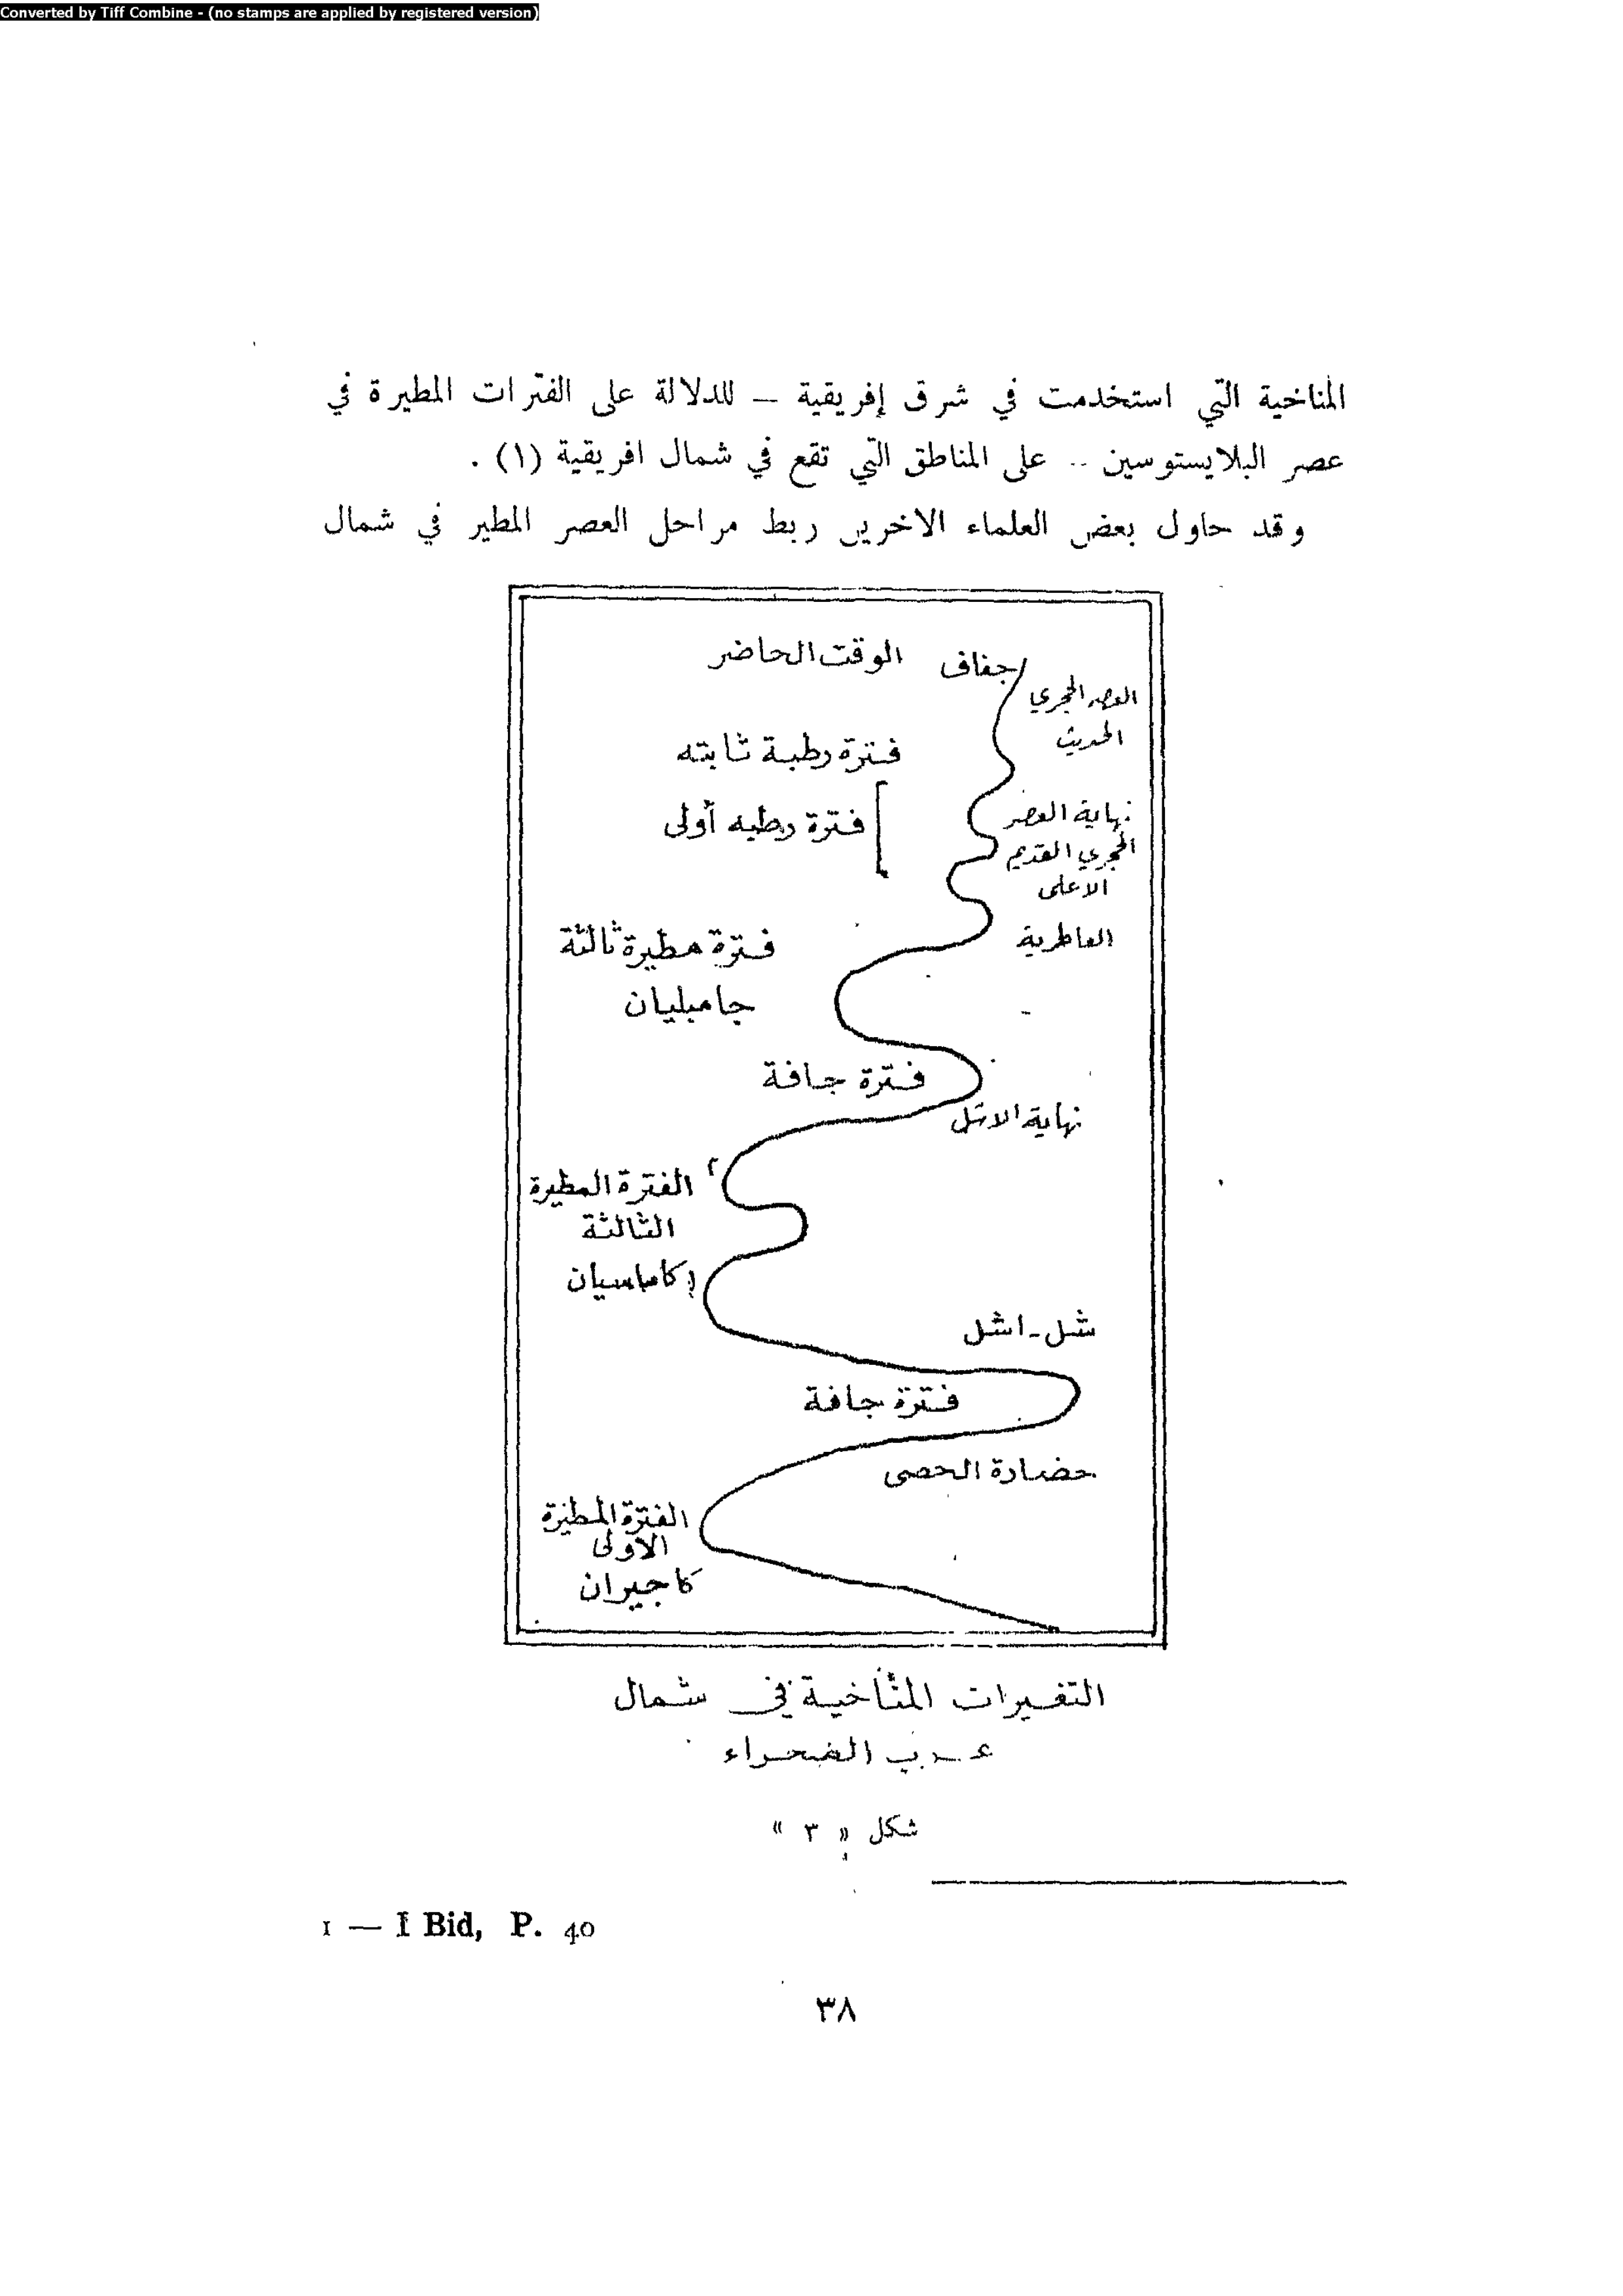 Converted by Tiff Combine - (no stamps are applied by registered version)
المناخية التي استخدمت في شرق إفريقية — للدلالة على الفترات المطيرة في
عصر البلايستوسين -- على المناطق التي تقع في شمال افريقية (١) .
وقد حاول بعض العلماء الاخرين ربط مراحل العصر المطير في شمال
جفاف الوقت الحاضر
العصر الحجري
الحديث
فترة رطبة ثابته
نهاية العصر
فترة رطبه أولى
الحجري القديم
الاعلى
العاطرية
فترة مطيرة ثالثة
جامبليان
فترة جافة
نهاية الاشل
الفترة المطيرة
الثالثة
كاماسيان
شل - اشل
فترة جافة
حضارة الحصى
الفترة المطيرة
الاولى
كاجيران
التغيرات المناخية في شمال
الصحراء
شكل « ٣ »
1 — I Bid, P. 40
٣٨